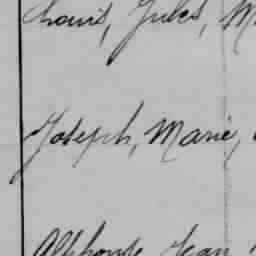 Louis, Jules, M
Joseph, Marie,
Alphonse Jean